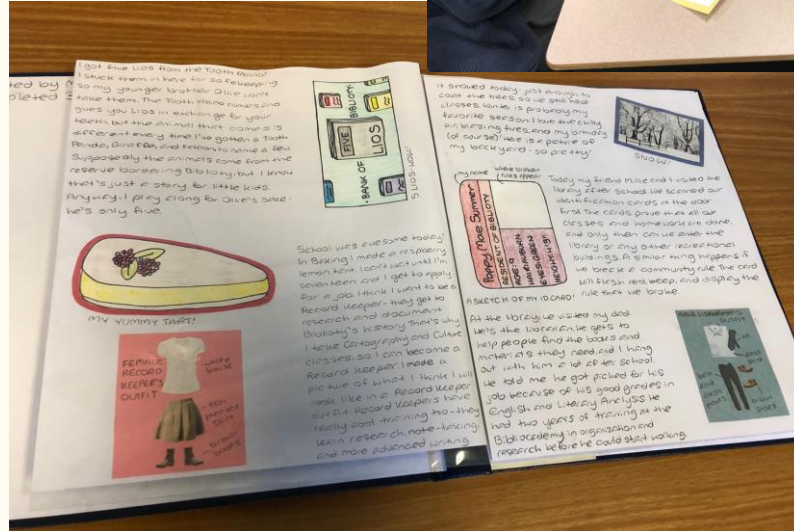 ted by
pleted
I got five Lios from the Tooth Rhino!
I stuck them in here for safekeeping
so my younger brother Ollie won't
take them. The Tooth Rhino comes and
gives you Lios in exchange for your
teeth, but the animal that comes is
different every time. I've gotten a Tooth
Panda, Giraffe, and to name a few.
Supposedly the animals come from the
reserve bordering Biblioty, but I know
that's just a story for little kids.
Anyway, I play along for Ollie's sake-
he's only five.
BIBLIOTY
FIVE
LIOS
BANK OF LIOS
5 LIOS-WOW!
MY YUMMY TART!
School was awesome today!
In Baking I made a raspberry
lemon tart. I can't wait until I'm
seventeen and I get to apply
for a job. I think I want to be a
Record Keeper- they get to
research and document
Biblioty's history. That's why
I take Cartography and Culture
classes, so I can become a
Record Keeper. I made a
picture of what I think I will
look like in a Record Keeper
outfit. Record Keepers have
really cool training too-they
learn research, note-taking,
and more advanced writing.
FEMALE
RECORD
KEEPER'S
OUTFIT
white
blouse
tan
pleated
skirt
brown
boots
It snowed today- just enough to
coat the trees, so we still had
classes. Winter is probably my
favorite season. I love the chilly
air, blazing fires, and my birthday
(of course)! Here is a picture of
my backyard- so pretty!
SNOW!
my name
where broken
rules appear
Poppy Mae Summer
RESIDENT OF BIBLIOTY
AGE: 9
HAIR: AUBURN
EYES: GREEN
HEIGHT: 4'9"
A SKETCH OF MY ID CARD!
Today my friend Millie and I visited the
library after school. We scanned our
identification cards at the door
first. The cards prove that all our
classes and homework are done,
and only then can we enter the
library or any other recreational
buildings. A similar thing happens if
we break a community rule. The card
will flash red, beep, and display the
rule that we broke.
At the library, we visited my dad.
He's the librarian. He gets to
help people find the books and
materials they need, and I hang
out with him a lot after school.
He told me he got picked for his
job because of his good grades in
English and Literary Analysis. He
had two years of training at the
Bibliocademy in organization and
research before he could start working.
MALE LIBRARIAN'S
OUTFIT